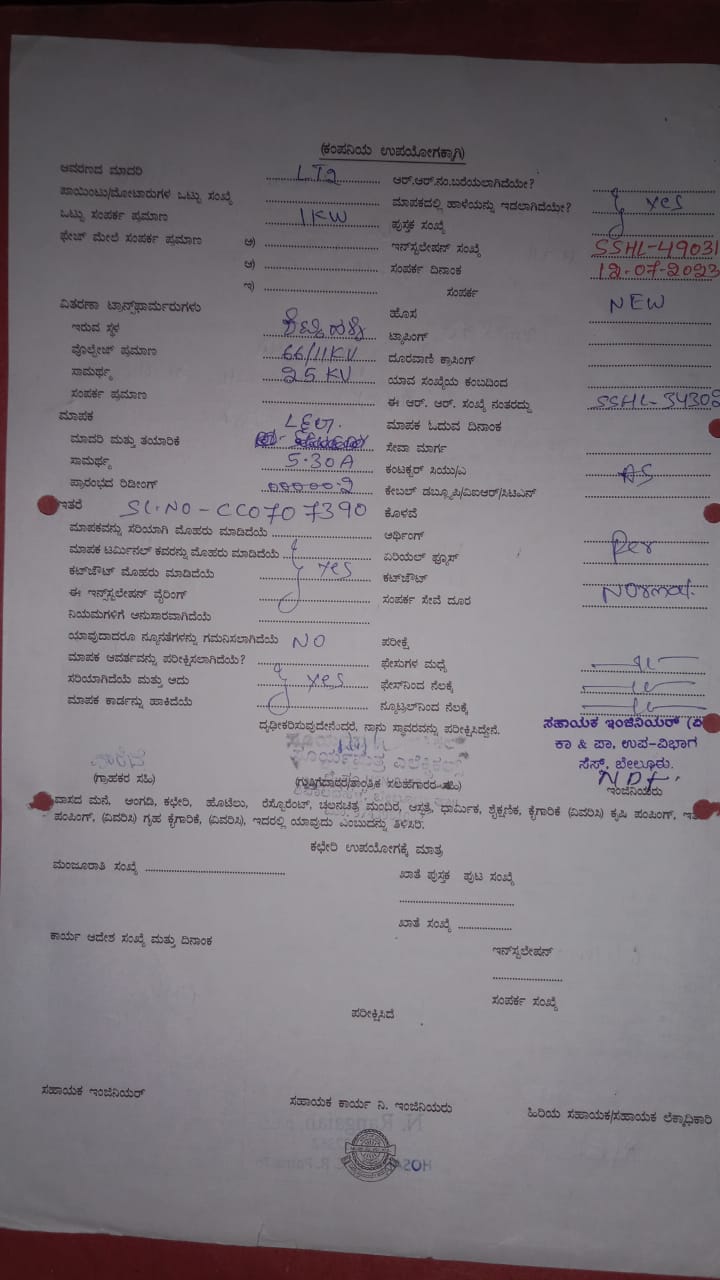 (ಕಂಪನಿಯ ಉಪಯೋಗಕ್ಕಾಗಿ)
ಆವರಣದ ಮಾದರಿ LT2 ಆರ್.ಆರ್.ನಂ.ಬರೆಯಲಾಗಿದೆಯೇ?
ಪಾಯಿಂಟು/ಮೋಟಾರುಗಳ ಒಟ್ಟು ಸಂಖ್ಯೆ ಮಾಪಕದಲ್ಲಿ ಹಾಳೆಯನ್ನು ಇಡಲಾಗಿದೆಯೇ? yes
ಒಟ್ಟು ಸಂಪರ್ಕ ಪ್ರಮಾಣ 1KW ಪುಸ್ತಕ ಸಂಖ್ಯೆ
ಫೇಜ್ ಮೇಲೆ ಸಂಪರ್ಕ ಪ್ರಮಾಣ ಅ) ಇನ್‌ಸ್ಟಲೇಷನ್ ಸಂಖ್ಯೆ SSHL-49031
ಆ) ಸಂಪರ್ಕ ದಿನಾಂಕ 12-07-2023
ಇ) ಸಂಪರ್ಕ
ವಿತರಣಾ ಟ್ರಾನ್ಸ್‌ಫಾರ್ಮರುಗಳು ಹೊಸ NEW
ಇರುವ ಸ್ಥಳ ಟ್ಯಾಪಿಂಗ್
ವೊಲ್ಟೇಜ್ ಪ್ರಮಾಣ 66/11KV ದೂರವಾಣಿ ಕ್ರಾಸಿಂಗ್
ಸಾಮರ್ಥ್ಯ 25 KV ಯಾವ ಸಂಖ್ಯೆಯ ಕಂಬದಿಂದ
ಸಂಪರ್ಕ ಪ್ರಮಾಣ ಈ ಆರ್. ಆರ್. ಸಂಖ್ಯೆ ನಂತರದ್ದು SSHL-34308
ಮಾಪಕ ಮಾಪಕ ಓದುವ ದಿನಾಂಕ
ಮಾದರಿ ಮತ್ತು ತಯಾರಿಕೆ ಸೇವಾ ಮಾರ್ಗ
ಸಾಮರ್ಥ್ಯ 5-30A ಕಂಟಕ್ಟರ್ ಸಿಯು/ಎ AS
ಪ್ರಾರಂಭದ ರಿಡೀಂಗ್ ಕೇಬಲ್ ಡಬ್ಲ್ಯೂಪಿ/ವಿಐಆರ್/ಸಿಟಿಎನ್
ಇತರೆ Sl.NO-CC0707390 ಕೊಳವೆ
ಮಾಪಕವನ್ನು ಸರಿಯಾಗಿ ಮೊಹರು ಮಾಡಿದೆಯೆ ಆರ್ಥಿಂಗ್
ಮಾಪಕ ಟರ್ಮಿನಲ್ ಕವರನ್ನು ಮೊಹರು ಮಾಡಿದೆಯೆ ಏರಿಯಲ್ ಫ್ಯೂಸ್ Per
ಕಟ್‌ಔಟ್ ಮೊಹರು ಮಾಡಿದೆಯೆ yes ಕಟ್‌ಔಟ್
ಈ ಇನ್ಸ್‌ಸ್ಟಲೇಷನ್ ವೈರಿಂಗ್ ಸಂಪರ್ಕ ಸೇವೆ ದೂರ Normal
ನಿಯಮಗಳಿಗೆ ಅನುಸಾರವಾಗಿದೆಯೆ
ಯಾವುದಾದರೂ ನ್ಯೂನತೆಗಳನ್ನು ಗಮನಿಸಲಾಗಿದೆಯೆ NO ಪರೀಕ್ಷೆ
ಮಾಪಕ ಆವರ್ತವನ್ನು ಪರೀಕ್ಷಿಸಲಾಗಿದೆಯೆ? ಫೇಸುಗಳ ಮಧ್ಯೆ
ಸರಿಯಾಗಿದೆಯೆ ಮತ್ತು ಅದು yes ಫೇಸ್‌ನಿಂದ ನೆಲಕ್ಕೆ
ಮಾಪಕ ಕಾರ್ಡನ್ನು ಹಾಕಿದೆಯೆ ನ್ಯೂಟ್ರಲ್‌ನಿಂದ ನೆಲಕ್ಕೆ
ದೃಢೀಕರಿಸುವುದೇನೆಂದರೆ, ನಾನು ಸ್ಥಾವರವನ್ನು ಪರೀಕ್ಷಿಸಿದ್ದೇನೆ.
ಸಹಾಯಕ ಇಂಜಿನಿಯರ್
ಕಾ & ಪಾ, ಉಪ-ವಿಭಾಗ
ಸೆಸ್, ಬೇಲೂರು.
(ಗ್ರಾಹಕರ ಸಹಿ) (ಗುತ್ತಿಗೆದಾರರ/ತಾಂತ್ರಿಕ ಸಲಹೆಗಾರರ ಸಹಿ) ಇಂಜಿನಿಯರು
ವಾಸದ ಮನೆ, ಅಂಗಡಿ, ಕಛೇರಿ, ಹೊಟೆಲು, ರೆಸ್ಟೋರೆಂಟ್, ಚಲನಚಿತ್ರ ಮಂದಿರ, ಆಸ್ಪತ್ರೆ, ಧಾರ್ಮಿಕ, ಶೈಕ್ಷಣಿಕ, ಕೈಗಾರಿಕೆ (ವಿವರಿಸಿ) ಕೃಷಿ ಪಂಪಿಂಗ್,
ಪಂಪಿಂಗ್, (ವಿವರಿಸಿ) ಗೃಹ ಕೈಗಾರಿಕೆ, (ವಿವರಿಸಿ), ಇದರಲ್ಲಿ ಯಾವುದು ಎಂಬುದನ್ನು ತಿಳಿಸಿರಿ.
ಕಛೇರಿ ಉಪಯೋಗಕ್ಕೆ ಮಾತ್ರ
ಮಂಜೂರಾತಿ ಸಂಖ್ಯೆ ಖಾತೆ ಪುಸ್ತಕ ಪುಟ ಸಂಖ್ಯೆ
ಖಾತೆ ಸಂಖ್ಯೆ
ಕಾರ್ಯ ಆದೇಶ ಸಂಖ್ಯೆ ಮತ್ತು ದಿನಾಂಕ
ಇನ್‌ಸ್ಟಲೇಷನ್
ಸಂಪರ್ಕ ಸಂಖ್ಯೆ
ಪರೀಕ್ಷಿಸಿದೆ
ಸಹಾಯಕ ಇಂಜಿನಿಯರ್ ಸಹಾಯಕ ಕಾರ್ಯ ನಿ. ಇಂಜಿನಿಯರು ಹಿರಿಯ ಸಹಾಯಕ/ಸಹಾಯಕ ಲೆಕ್ಕಾಧಿಕಾರಿ